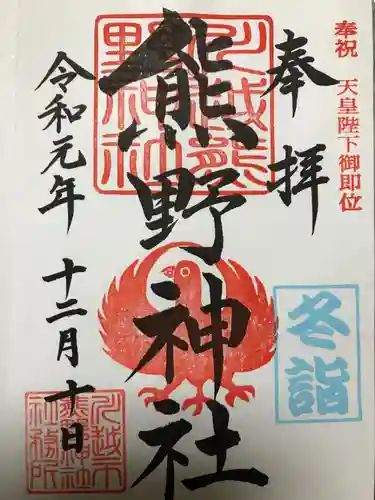 奉祝 天皇陛下御即位
奉拝
冬詣
川越熊野神社
熊野神社
令和元年 十二月十日
川越市熊野神社社務所